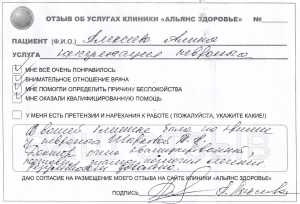 ОТЗЫВ ОБ УСЛУГАХ КЛИНИКИ «АЛЬЯНС ЗДОРОВЬЕ» №
ПАЦИЕНТ (Ф.И.О.) Алина
УСЛУГА консультация невролога
МНЕ ВСЁ ОЧЕНЬ ПОНРАВИЛОСЬ
ВНИМАТЕЛЬНОЕ ОТНОШЕНИЕ ВРАЧА
МНЕ ПОМОГЛИ ОПРЕДЕЛИТЬ ПРИЧИНУ БЕСПОКОЙСТВА
МНЕ ОКАЗАЛИ КВАЛИФИЦИРОВАННУЮ ПОМОЩЬ
У МЕНЯ ЕСТЬ ПРЕТЕНЗИИ И НАРЕКАНИЯ К РАБОТЕ ( ПОЖАЛУЙСТА, УКАЖИТЕ КАКИЕ!)
В вашей клинике была на приеме
у невролога
Доктор очень квалифицированный
лечения
довольна.
ДАЮ СОГЛАСИЕ НА РАЗМЕЩЕНИЕ МОЕГО ОТЗЫВА НА САЙТЕ КЛИНИКИ «АЛЬЯНС ЗДОРОВЬЕ»
ПОДПИСЬ